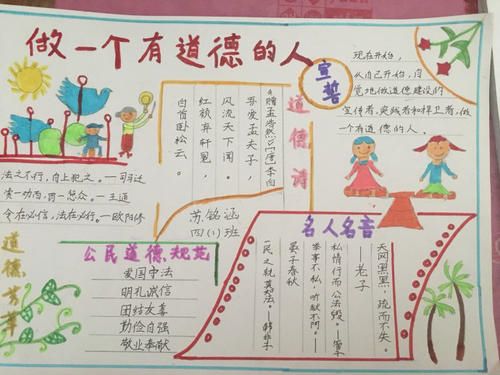 做一个有道德的人
宣誓
现在开始,
从自己开始,自
觉地做道德建设的
宣传者,实践者和捍卫者,做
一个有道德的人。
道德诗
《赠孟浩然》[唐]李白
吾爱孟夫子,
风流天下闻。
红颜弃轩冕,
白首卧松云。
苏铭涵
四(1)班
法之不行,自上犯之。—司马迁
赏一功而
令在必信,法在必行。—欧阳修
道德
公民道德规范
爱国守法
明礼诚信
团结友善
勤俭自强
敬业奉献
名人名言
天网
疏而不失。
—老子
私情行而公法毁。—管子
晏子春秋